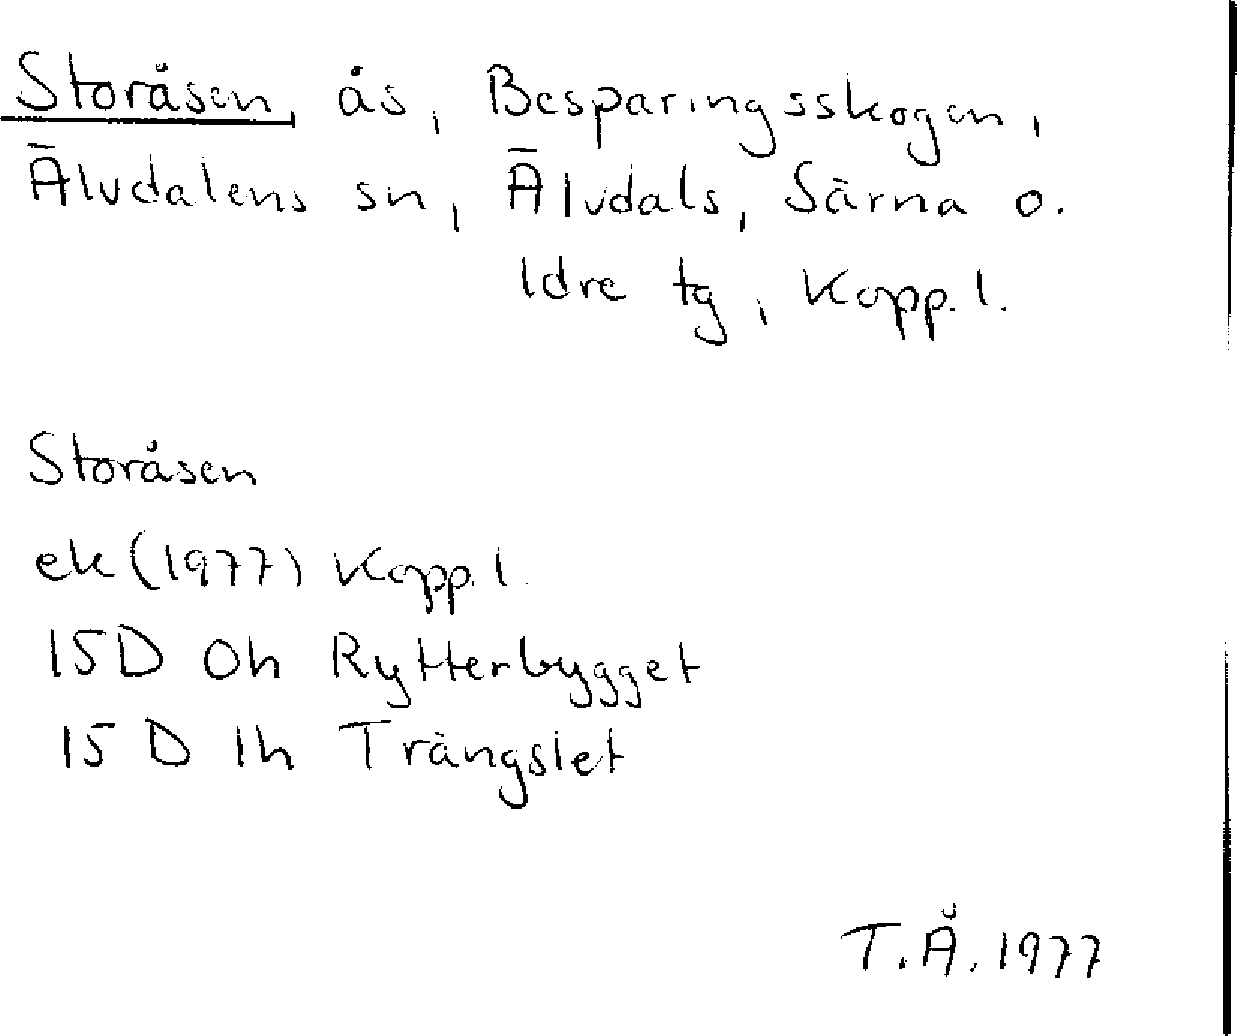 Storåsen, ås, Besparingsskogen,
Älvdalens sn, Älvdals, Särna o.
Idre tg, Kopp. l.
Storåsen
ek (1977) Kopp. l.
15D 0h Rytterbygget
15 D 1h Trängslet
T.Å. 1977